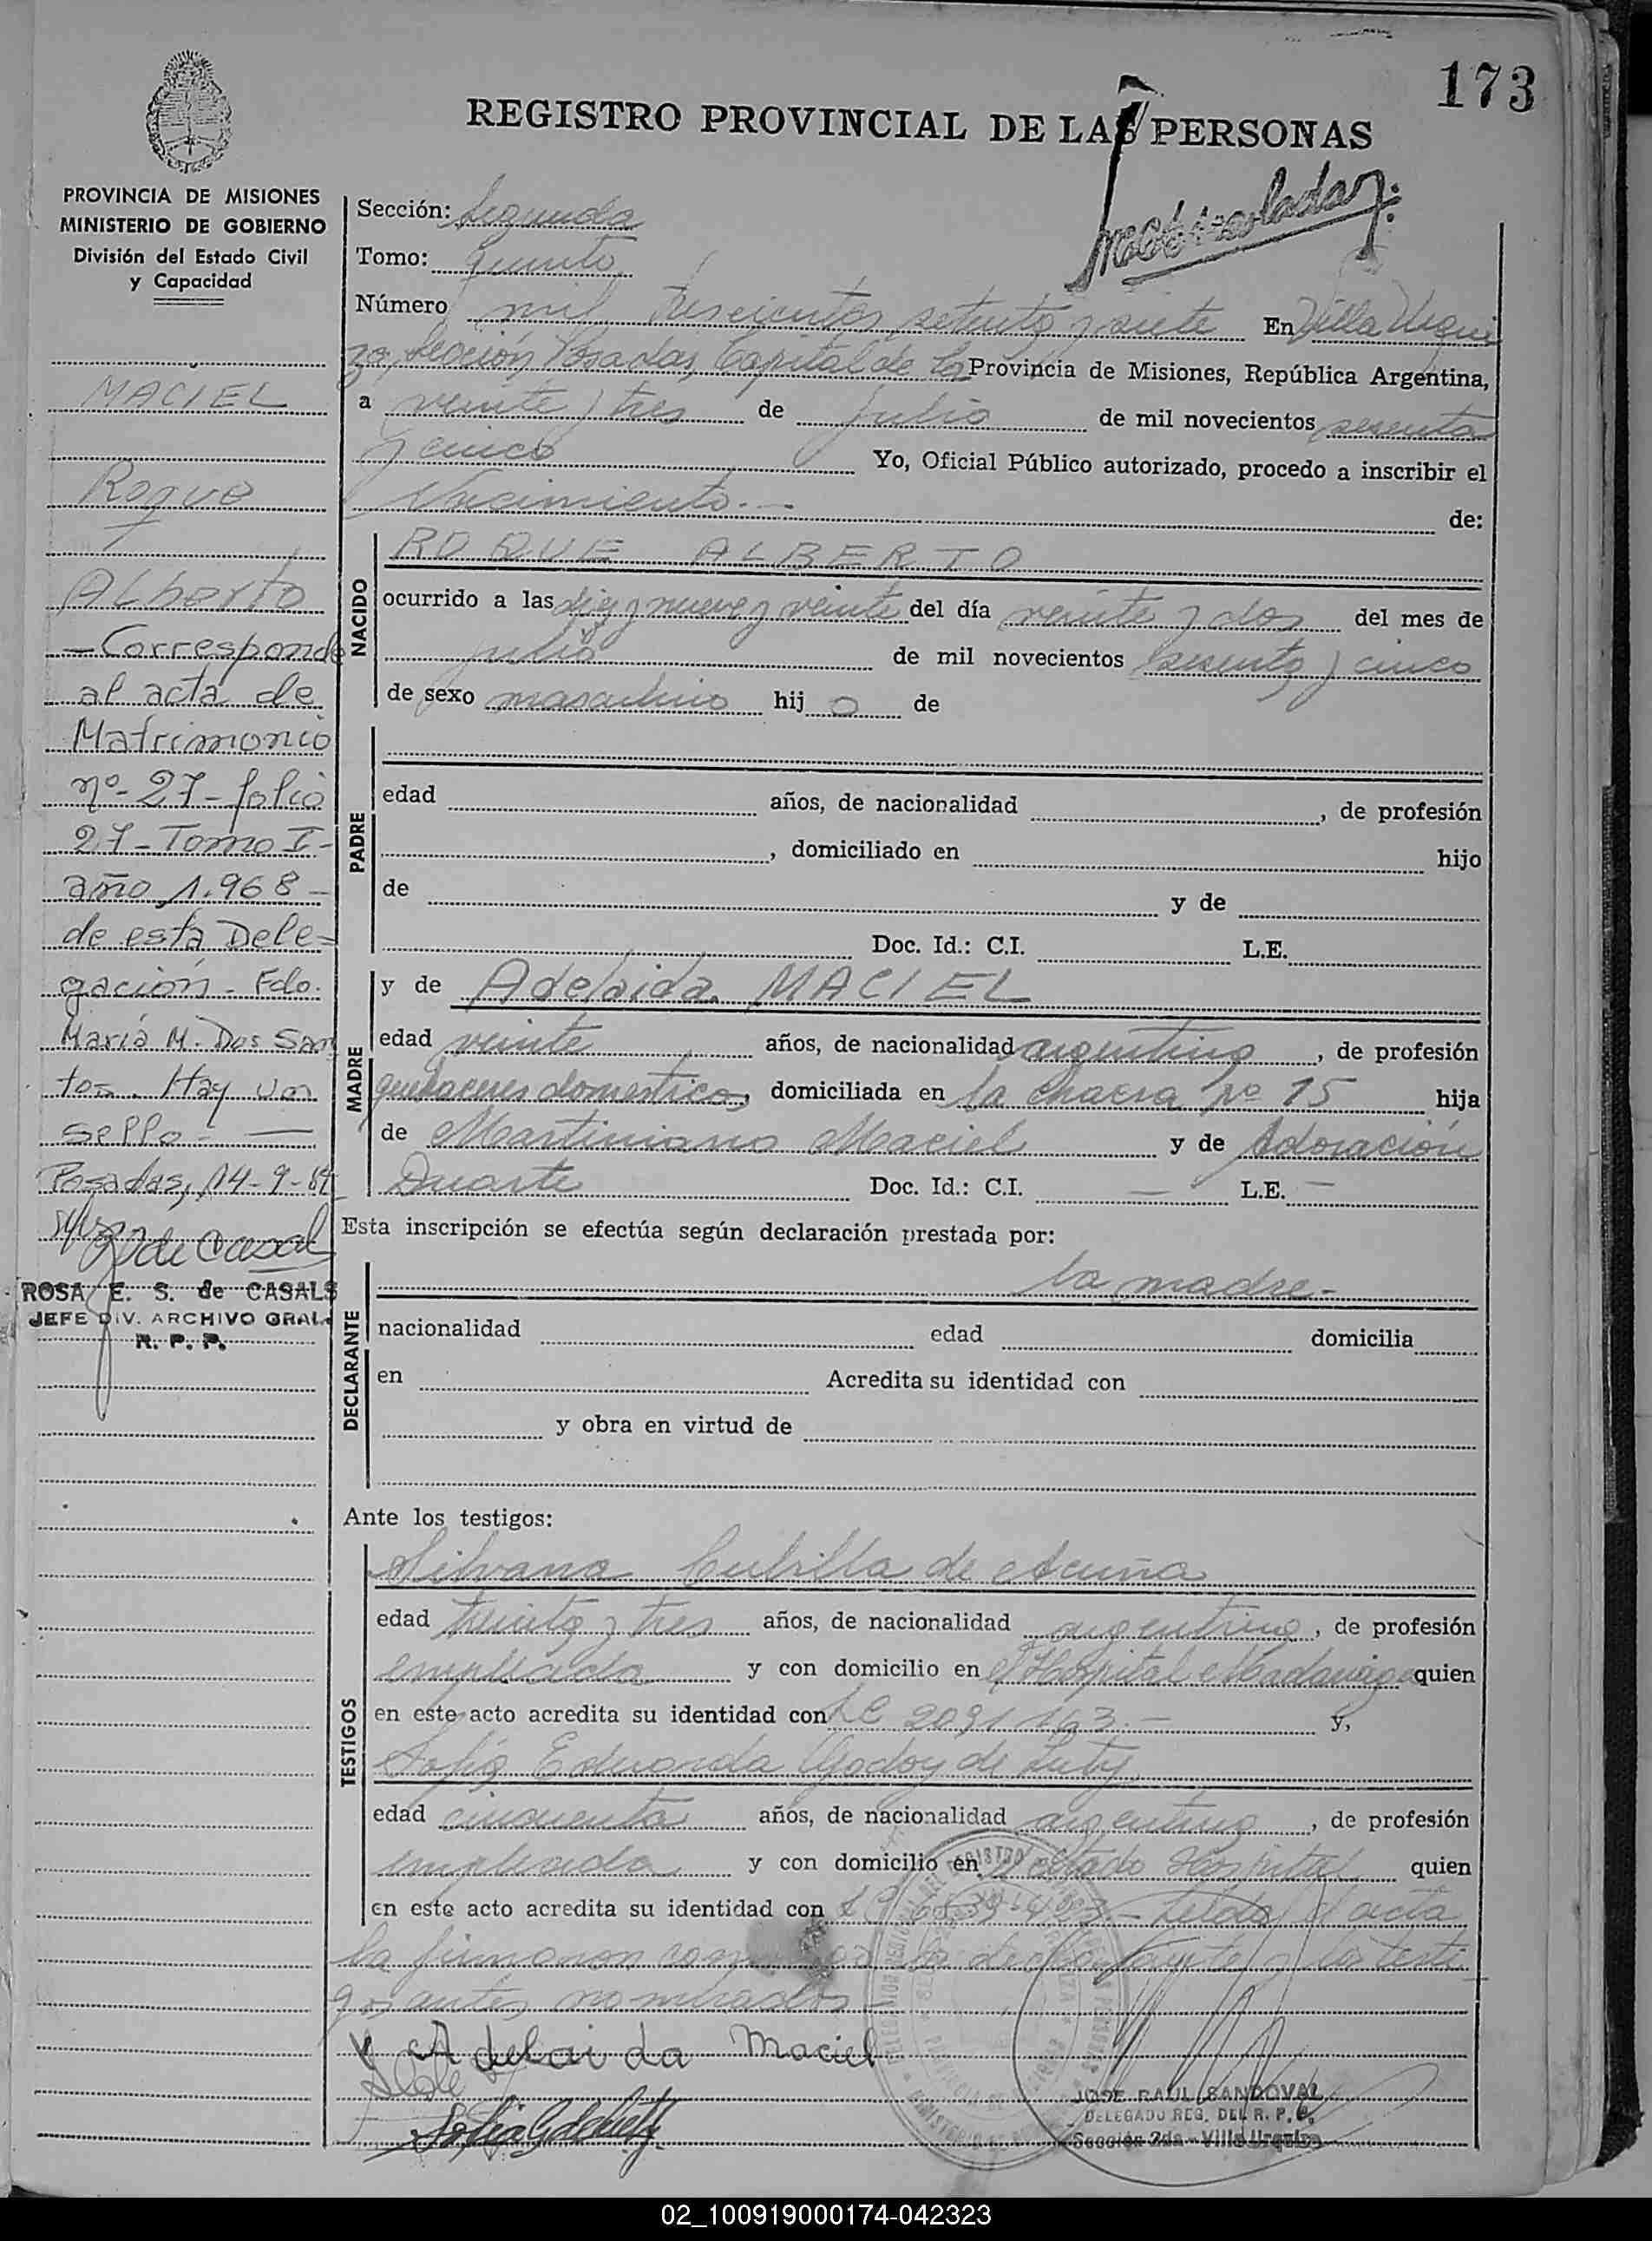 173
REGISTRO PROVINCIAL DE LAS PERSONAS
PROVINCIA DE MISIONES
MINISTERIO DE GOBIERNO
División del Estado Civil
y Capacidad
MACIEL
Roque
Alberto
- Corresponde
al acta de
Matrimonio
nº- 27 - folio
27 - Tomo I -
año 1.968 -
de esta Dele=
gación - Fdo.
María M. Dos San
tos. Hay un
sello - —
Posadas, 14-9-
de Casals
ROSA E. S. de CASALS
JEFE DIV. ARCHIVO GRAL.
R. P. P.
Sección: Segunda
Tomo: Quinto
Número mil trescientos setenta y siete En Villa Urqui
za Sección Posadas, Capital de la Provincia de Misiones, República Argentina,
a veinte y tres de julio de mil novecientos sesenta
y cinco Yo, Oficial Público autorizado, procedo a inscribir el
Nacimiento.- de:
NACIDO
ROQUE ALBERTO
ocurrido a las diez y nueve y veinte del día veinte y dos del mes de
julio de mil novecientos sesenta y cinco
de sexo masculino hijo de
PADRE
edad años, de nacionalidad , de profesión
, domiciliado en hijo
de y de
Doc. Id.: C.I. L.E.
MADRE
y de Adelaida MACIEL
edad veinte años, de nacionalidad argentina , de profesión
quehaceres domesticos domiciliada en la chacra nº 15 hija
de Martiniano Maciel y de Adoración
Duarte Doc. Id.: C.I. — L.E. —
Esta inscripción se efectúa según declaración prestada por:
DECLARANTE
la madre.-
nacionalidad edad domicilia
en Acredita su identidad con
y obra en virtud de
Ante los testigos:
TESTIGOS
Silvana Cubilla de Acuña
edad treinta y tres años, de nacionalidad argentina , de profesión
empleada y con domicilio en el Hospital Madariaga quien
en este acto acredita su identidad con LC 2091163.- y,
Sofía Eduarda Godoy de
edad cincuenta años, de nacionalidad argentina , de profesión
empleada y con domicilio en citado Hospital quien
en este acto acredita su identidad con Leída el acta
la firmaron la declarante y los testi
gos antes nombrados
Adelaida Maciel
JOSE RAUL SANDOVAL
DELEGADO REG. DEL R. P. P.
Sección 2da - Villa Urquiza
02_100919000174-042323